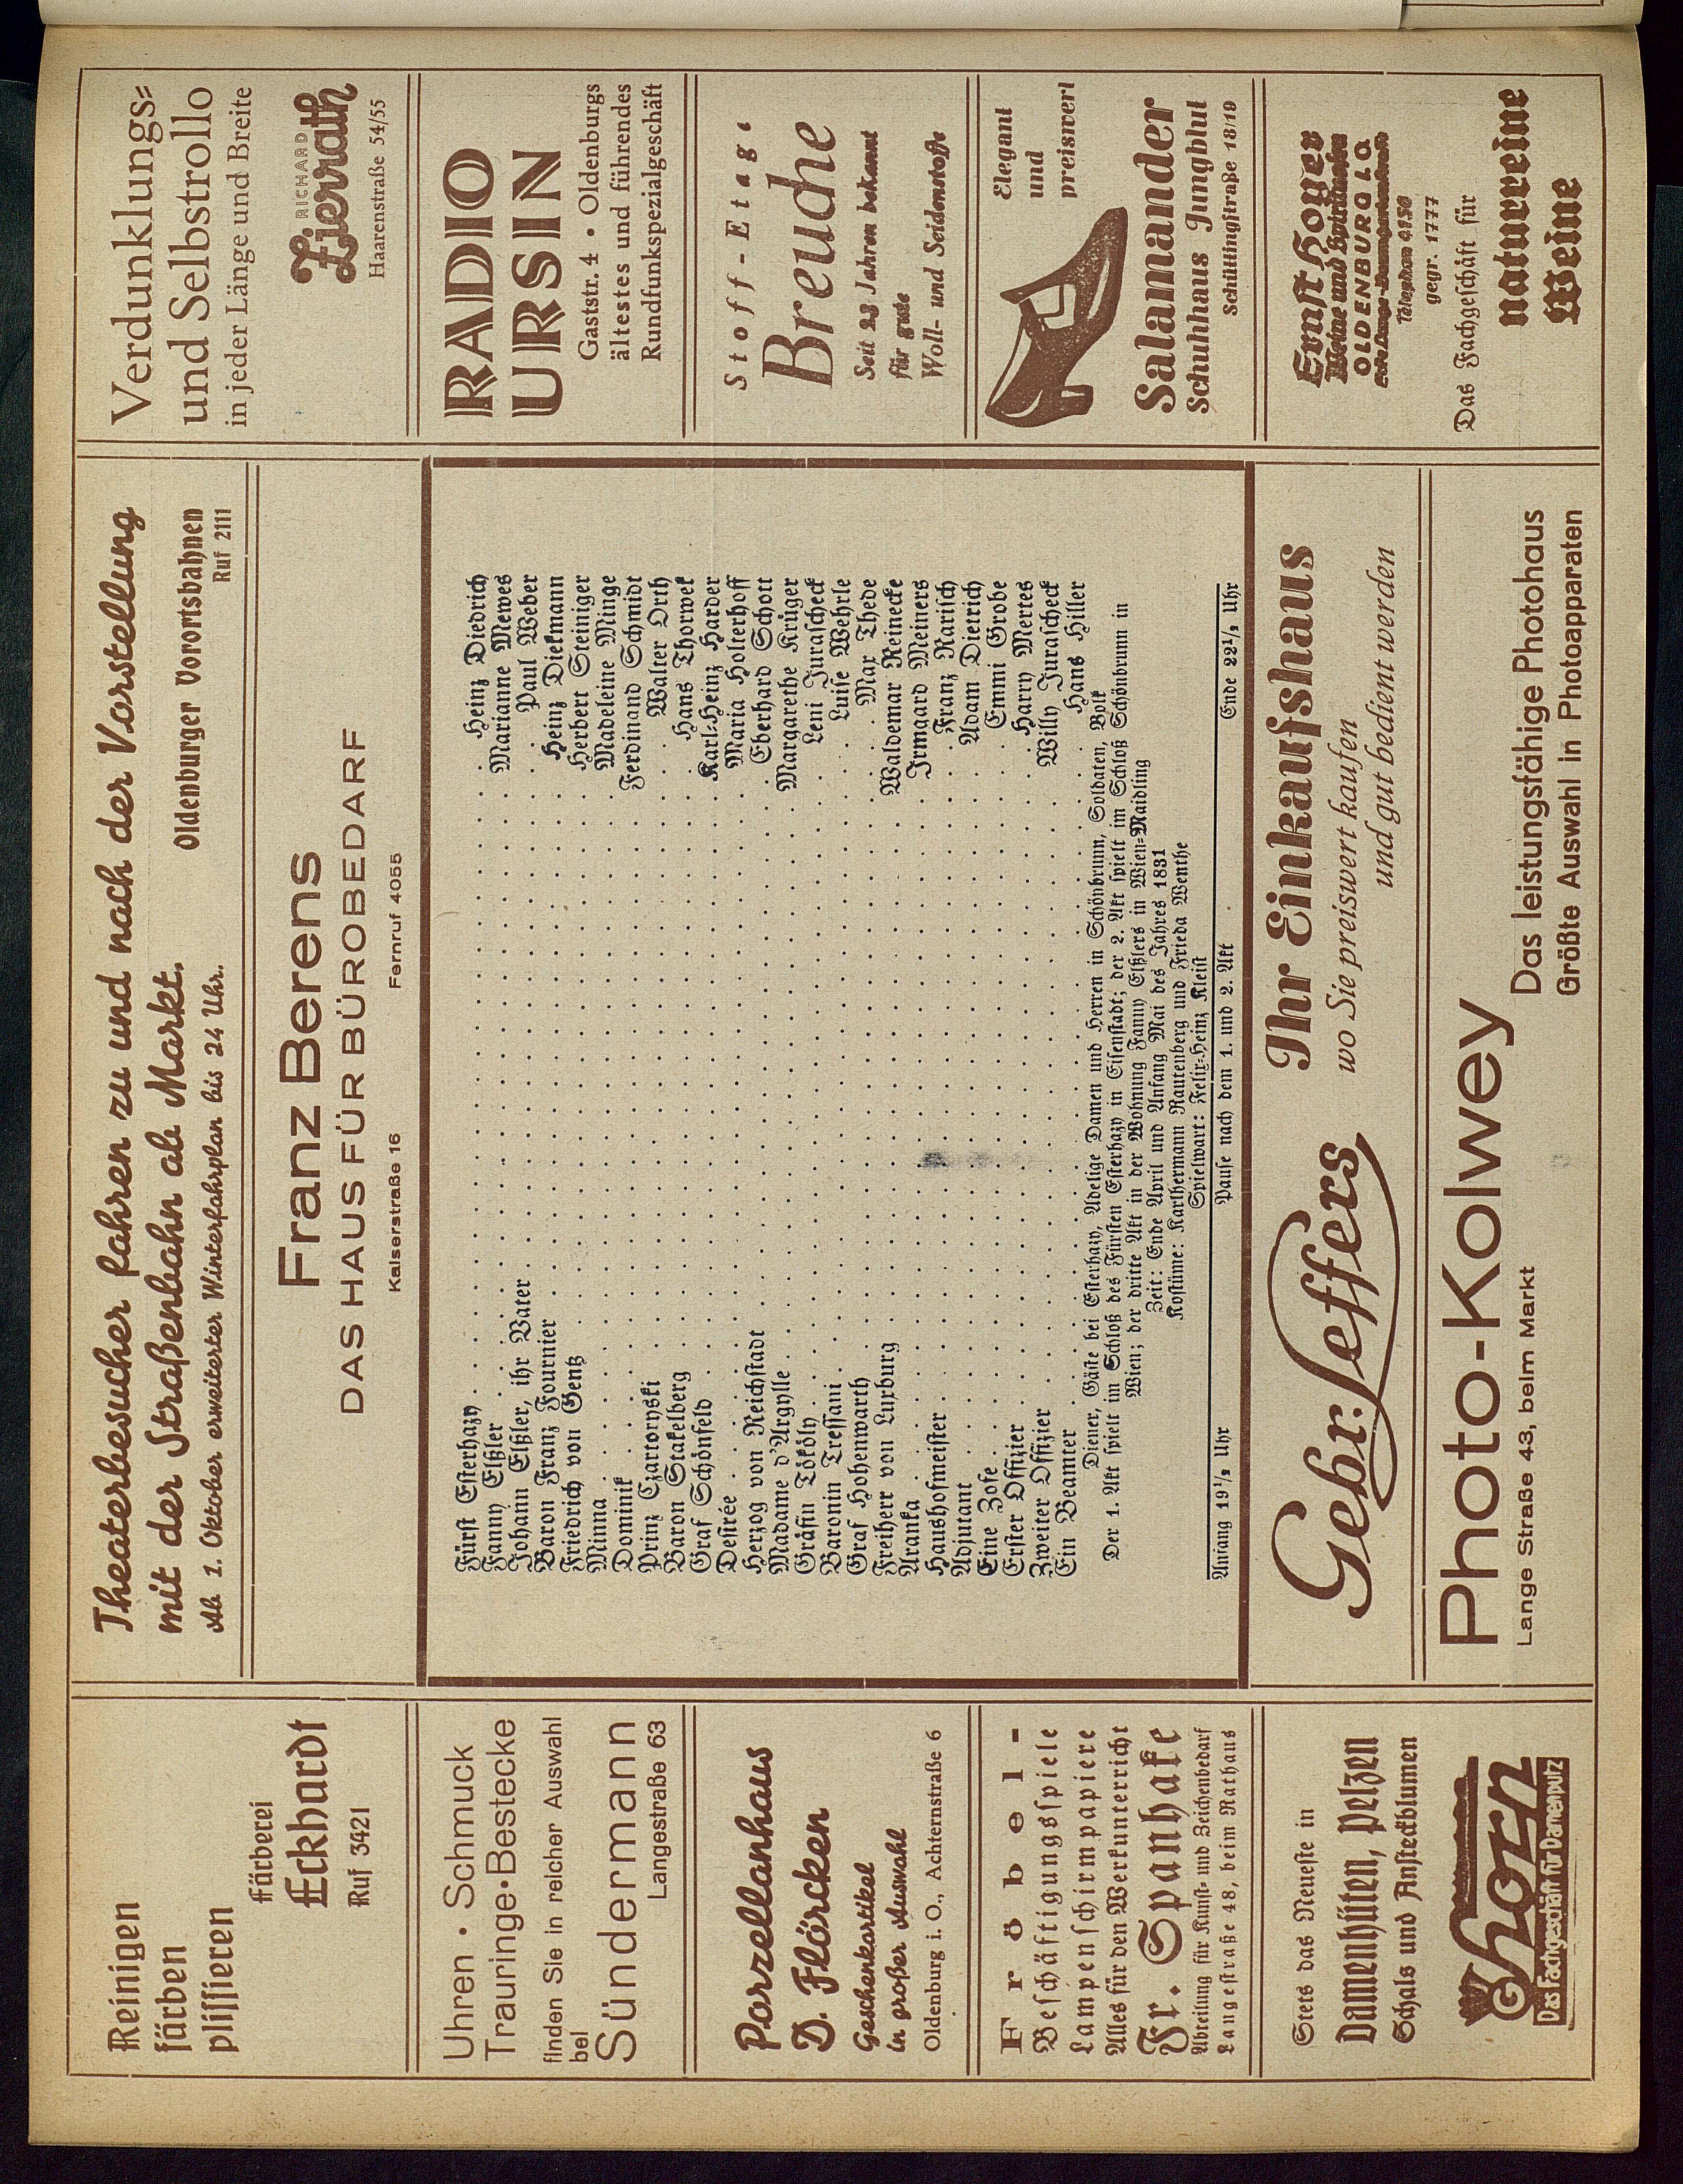 Reinigen
färben
plissieren
Färberei
Eckhardt
Ruf 3421
Uhren · Schmuck
Trauringe · Bestecke
finden Sie in reicher Auswahl
bei
Sündermann
Langestraße 63
Porzellanhaus
D. Flörcken
Geschenkartikel
in großer Auswahl
Oldenburg i. O., Achternstraße 6
Fröbel-
Beschäftigungsspiele
Lampenschirmpapiere
Alles für den Werkunterricht
Fr. Spanhake
Abteilung für Kunst- und Zeichenbedarf
Langestraße 48, beim Rathaus
Stets das Neueste in
Damenhüten, Pelzen
Schals und Ansteckblumen
Ghorn
Das Fachgeschäft für Damenputz
Theaterbesucher fahren zu und nach der Vorstellung
mit der Straßenbahn ab Markt.
Ab 1. Oktober erweiterter Winterfahrplan bis 24 Uhr.
Oldenburger Vorortsbahnen
Ruf 2111
Franz Berens
DAS HAUS FÜR BÜROBEDARF
Kaiserstraße 16 Fernruf 4055
Fürst Esterhazy . . . Heinz Diedrich
Fanny Elßler . . . Marianne Mewes
Johann Elßler, ihr Vater . . . Paul Weber
Baron Franz Fournier . . . Heinz Diekmann
Friedrich von Gentz . . . Herbert Steiniger
Minna . . . Madeleine Minge
Dominik . . . Ferdinand Schmidt
Prinz Czartoryski . . . Walter Orth
Baron Stakelberg . . . Hans Thorwek
Graf Schönfeld . . . Karl-Heinz Harder
Desirée . . . Maria Holterhoff
Herzog von Reichstadt . . . Eberhard Schott
Madame d'Argylle . . . Margarethe Krüger
Gräfin Tököly . . . Leni Jurascheck
Baronin Tressani . . . Luise Wehrle
Graf Hohenwarth . . . Max Thede
Freiherr von Luxburg . . . Waldemar Reinecke
Aranka . . . Irmgard Meiners
Haushofmeister . . . Franz Rarisch
Adjutant . . . Adam Dietrich
Eine Zofe . . . Emmi Grobe
Erster Offizier . . . Harry Mertes
Zweiter Offizier . . . Willy Jurascheck
Ein Beamter . . . Hans Hiller
Diener, Gäste bei Esterhazy, Adelige Damen und Herren in Schönbrunn, Soldaten, Volk
Der 1. Akt spielt im Schloß des Fürsten Esterhazy in Eisenstadt; der 2. Akt spielt im Schloß Schönbrunn in
Wien; der dritte Akt in der Wohnung Fanny Elßlers in Wien-Maidling
Zeit: Ende April und Anfang Mai des Jahres 1831
Kostüme: Karlhermann Rautenberg und Frieda Wenthe
Spielwart: Felix-Heinz Kleist
Anfang 19½ Uhr Pause nach dem 1. und 2. Akt Ende 22½ Uhr
Gebr. Leffers
Ihr Einkaufshaus
wo Sie preiswert kaufen
und gut bedient werden
Photo-Kolwey
Lange Straße 43, beim Markt
Das leistungsfähige Photohaus
Größte Auswahl in Photoapparaten
Verdunklungs=
und Selbstrollo
in jeder Länge und Breite
RICHARD
Zierrath
Haarenstraße 54/55
RADIO
URSIN
Gaststr. 4 • Oldenburgs
ältestes und führendes
Rundfunkspezialgeschäft
Stoff-Etage
Breuche
Seit 23 Jahren bekannt
für gute
Woll- und Seidenstoffe
Elegant
und
preiswert
Salamander
Schuhhaus Jungblut
Schüttingstraße 18/19
Ernst Hoyer
Weine und Spirituosen
OLDENBURG I.O
Telephon 4150
gegr. 1777
Das Fachgeschäft für
naturreine
Weine